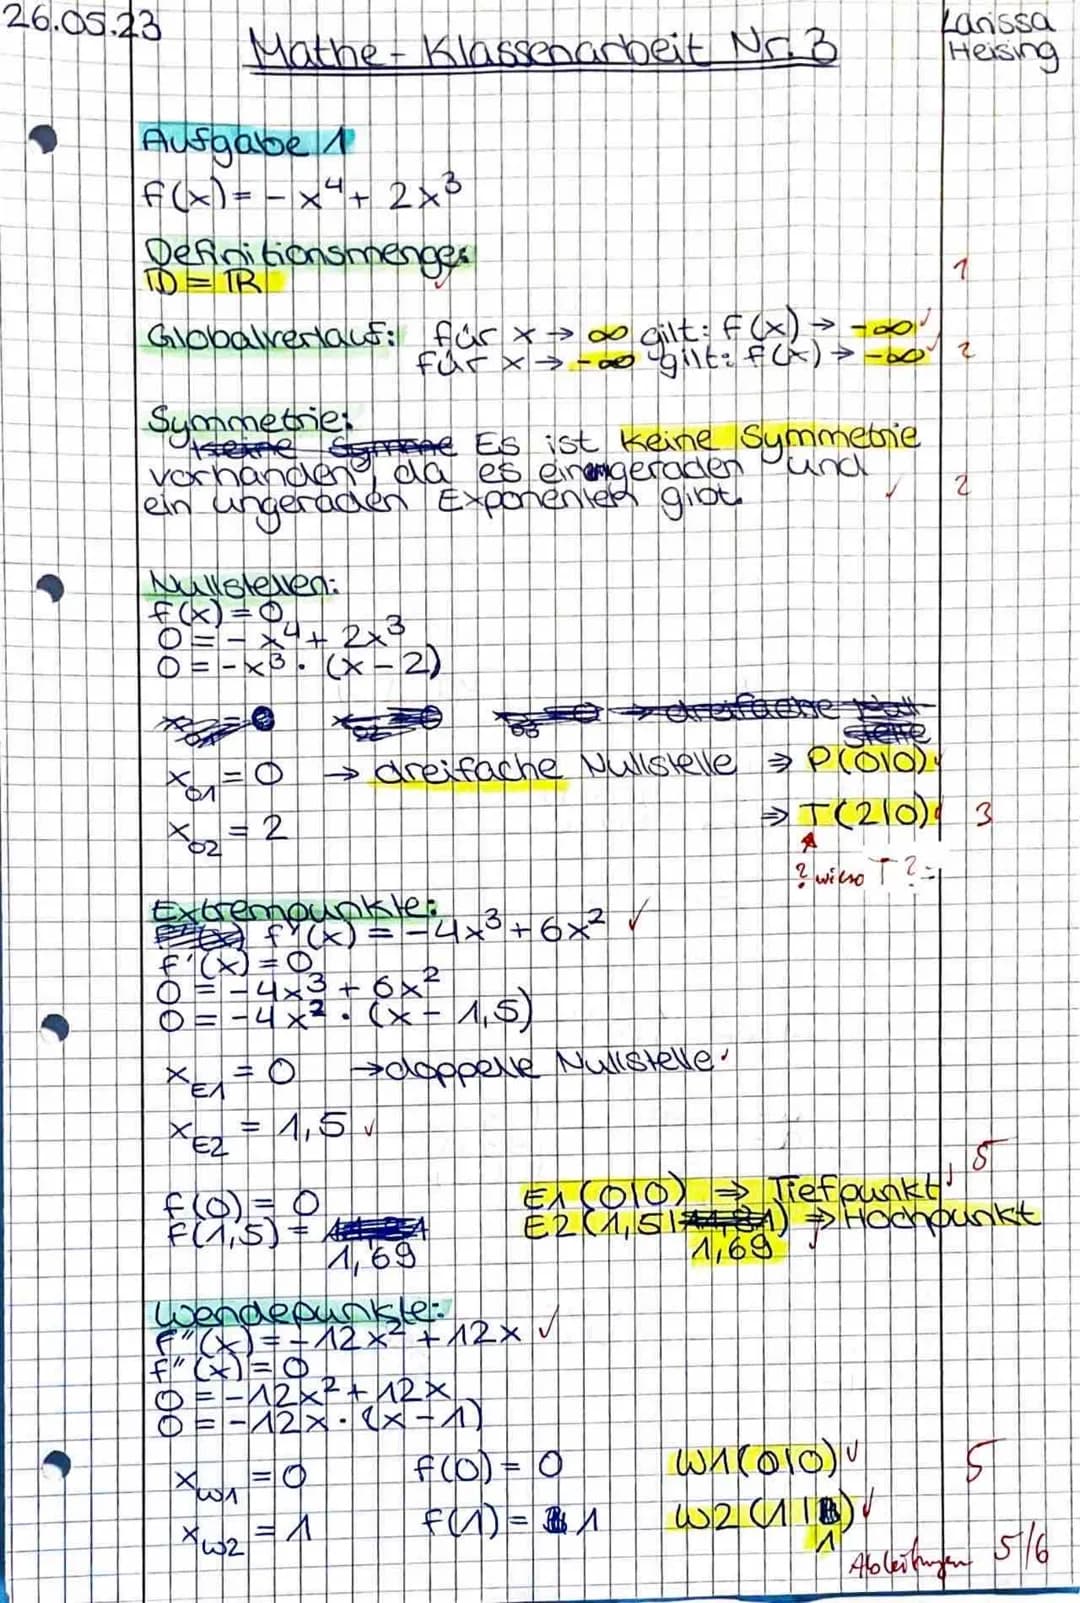 26.05.23
Mathe-Klassenarbeit Nr. 3
Larissa
Heising
Aufgabe 1
f(x) = -x⁴ + 2x³
Definitionsmenge:
ID = IR
1
Globalverlauf: für x → ∞ gilt: f(x) → -∞ ✓
für x → -∞ gilt: f(x) → -∞ ✓ 2
Symmetrie:
Es ist keine Symmetrie
vorhanden, da es einen geraden und
ein ungeraden Exponenten gibt. ✓ 2
Nullstellen:
f(x) = 0
0 = -x⁴ + 2x³
0 = -x³ · (x - 2)
→ dreifache
x₀₁ = 0 → dreifache Nullstelle ⇒ P(0|0)
x₀₂ = 2 ⇒ T(2|0) 3
? wieso T ?
Extrempunkte:
f'(x) = -4x³ + 6x² ✓
f'(x) = 0
0 = -4x³ + 6x²
0 = -4x² · (x - 1,5)
x_E1 = 0 → doppelte Nullstelle
x_E2 = 1,5 ✓
5
f(0) = 0 E1(0|0) ⇒ Tiefpunkt
f(1,5) = 1,69 E2(1,5|1,69) ⇒ Hochpunkt
Wendepunkte:
f''(x) = -12x² + 12x ✓
f''(x) = 0
0 = -12x² + 12x
0 = -12x · (x - 1)
x_W1 = 0 f(0) = 0 W1(0|0) ✓ 5
x_W2 = 1 f(1) = 1 W2(1|1) ✓
Ableitungen 5/6